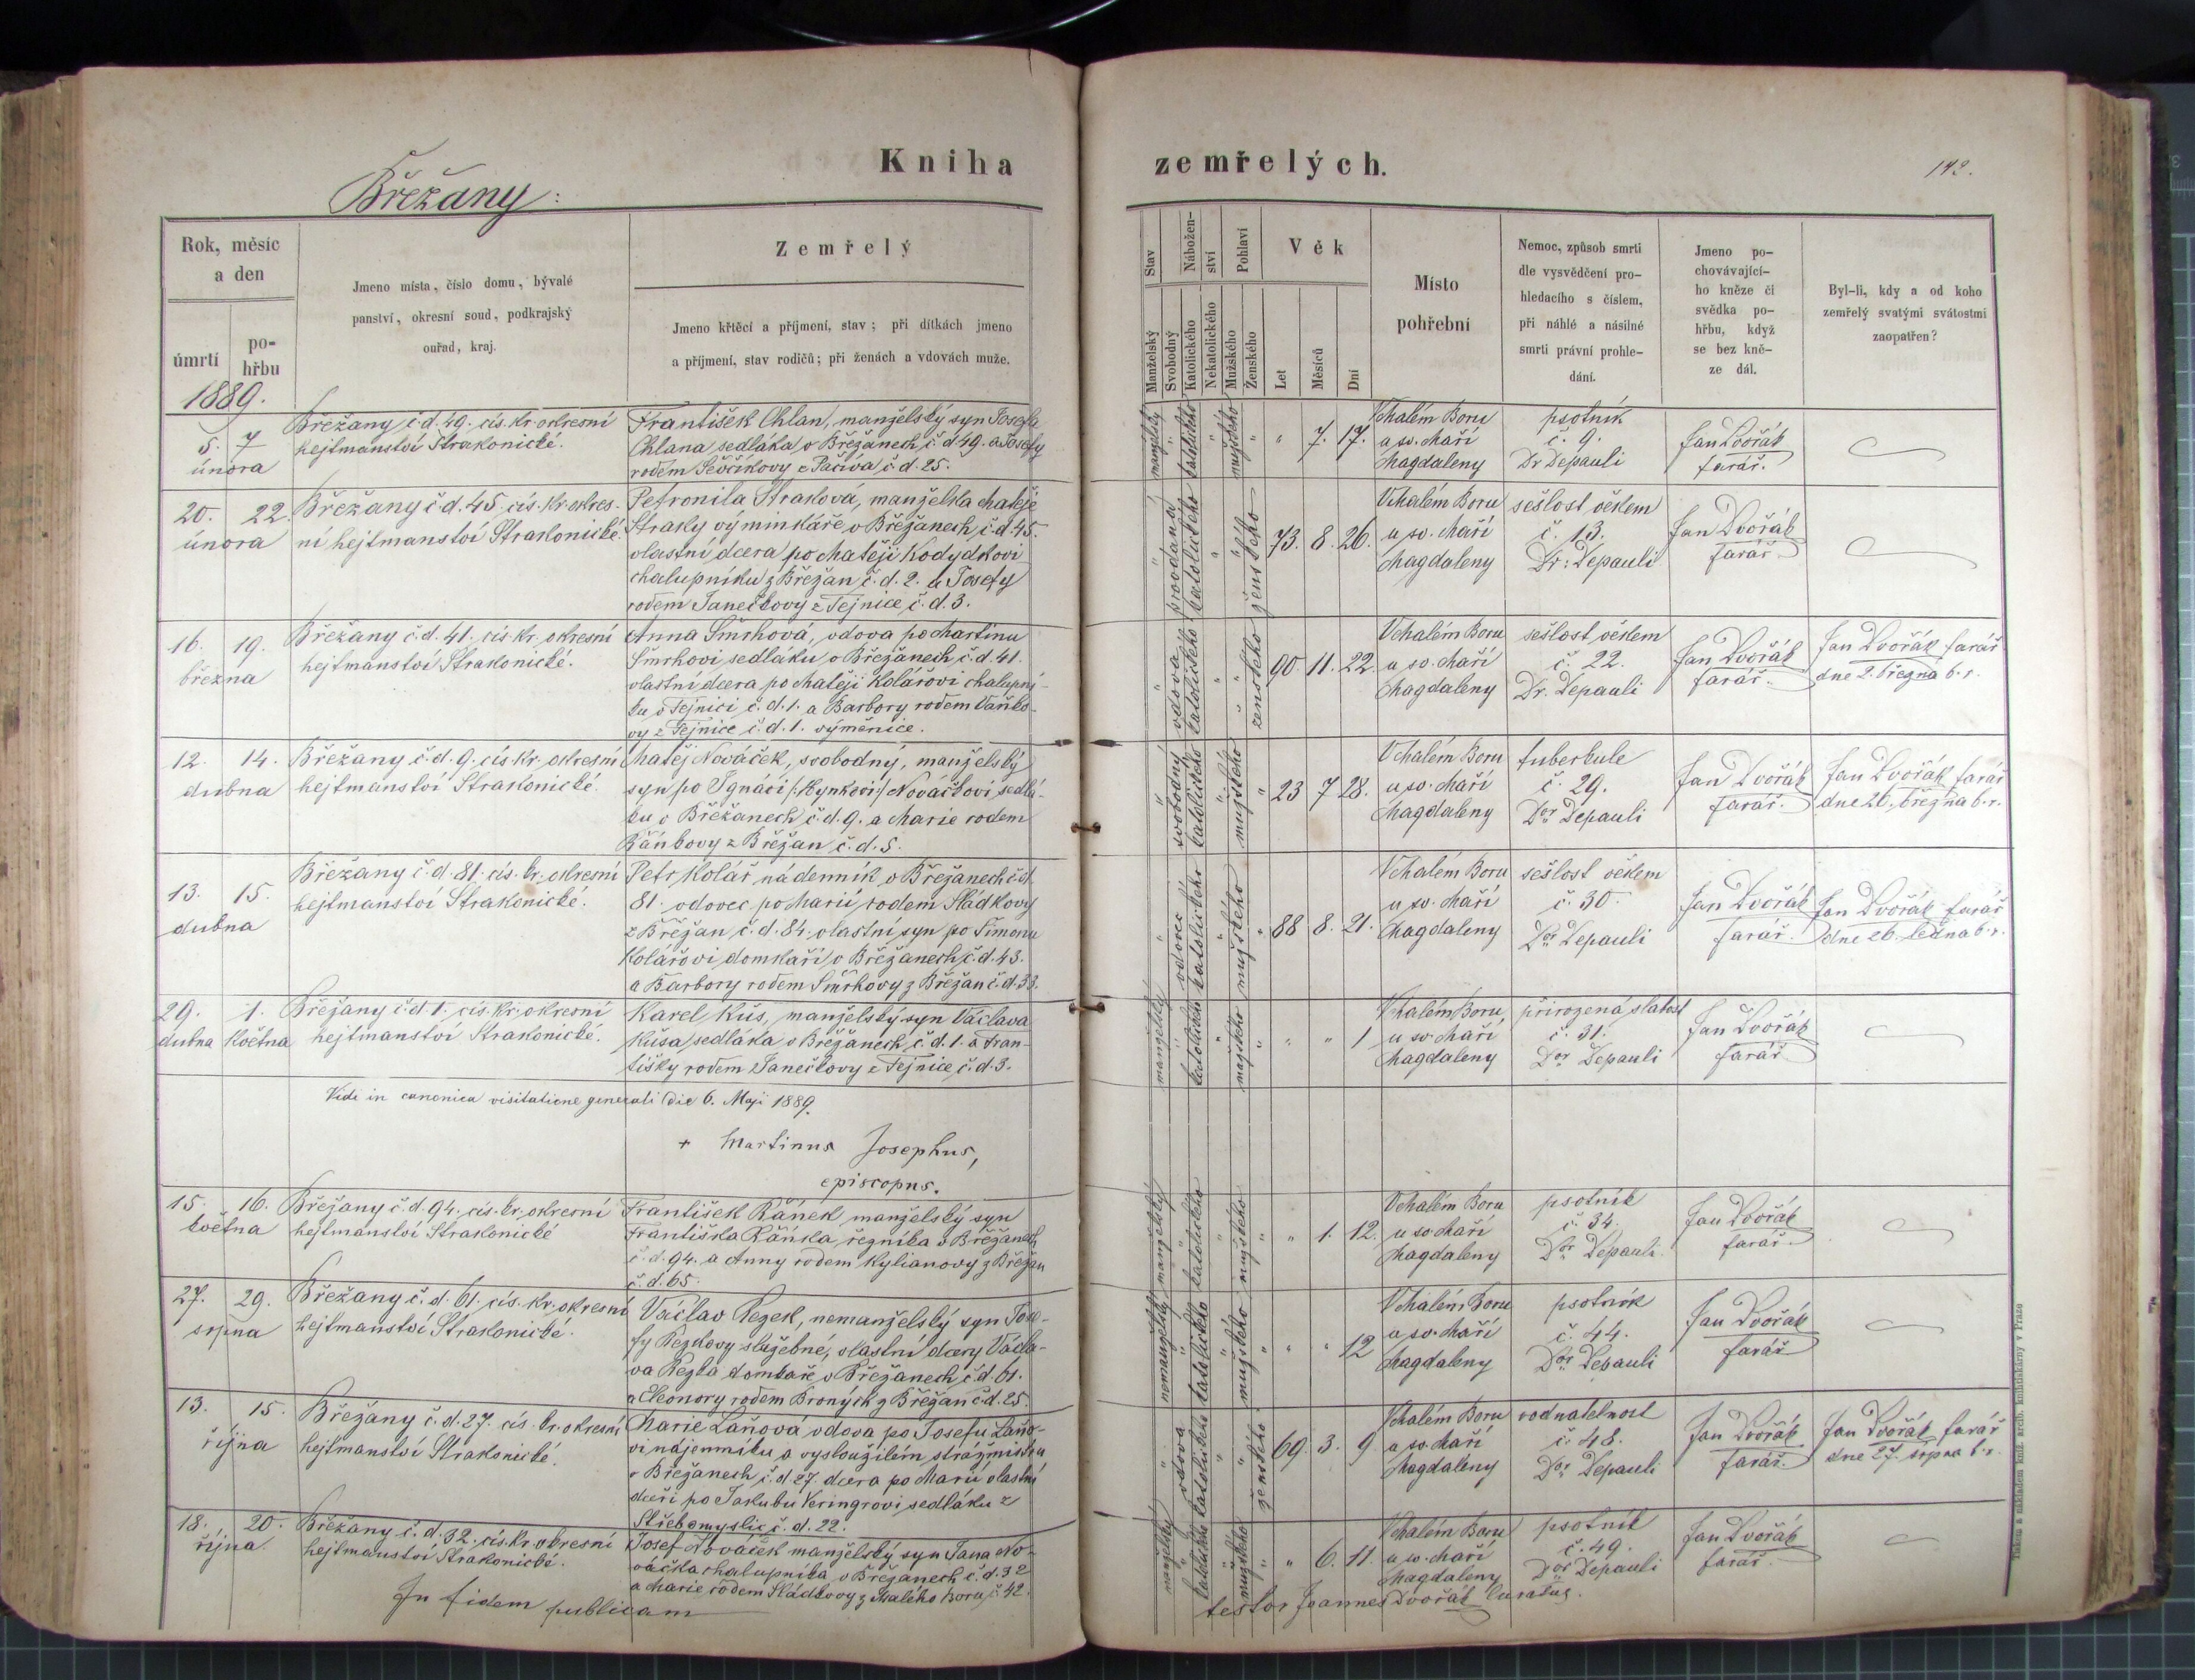 Kniha
zemřelých.
142.
Břežany:
Rok, měsíc
a den
úmrtí
po-
hřbu
Jmeno místa, číslo domu, bývalé
panství, okresní soud, podkrajský
ouřad, kraj.
Zemřelý
Jmeno křtěcí a příjmení, stav; při dítkách jmeno
a příjmení, stav rodičů; při ženách a vdovách muže.
Stav
Manželský
Svobodný
Nábožen-
ství
Katolického
Nekatolického
Pohlaví
Mužského
Ženského
Věk
Let
Měsíců
Dní
Místo
pohřební
Nemoc, způsob smrti
dle vysvědčení pro-
hledacího s číslem,
při náhlé a násilné
smrti právní prohle-
dání.
Jmeno po-
chovávající-
ho kněze či
svědka po-
hřbu, když
se bez kně-
ze dál.
Byl-li, kdy a od koho
zemřelý svatými svátostmi
zaopatřen?
1889.
5. 7
února
Břežany č.d. 49. cís. kr. okresní
hejtmanství Strakonické.
František Chlan, manželský syn Josefa
Chlana sedláka v Břežanech č.d 49. a Josefy
rodem Ševčíkovy z Pačiva č.d. 25.
manželský katolického mužského " 7. 17.
V malém Boru
u sv. Maří
Magdaleny
psotník
č. 9.
Dr Depauli
Jan Dvořák
farář.
20. 22.
února
Břežany č.d. 45. cís. kr. okres-
ní hejtmanství Strakonické.
Petronila Straková, manželka Matěje
Straky výminkáře v Břežanech č.d. 45.
vlastní dcera po Matěji Kodydkovi
chalupníku z Břežan č.d. 2. a Josefy
rodem Janečkovy z Tejnice č.d. 3.
provdaná katolického ženského 73. 8. 26.
V malém Boru
u sv. Maří
Magdaleny
sešlost věkem
č. 13.
Dr. Depauli
Jan Dvořák
farář
16. 19.
března
Břežany č.d. 41. cís. kr. okresní
hejtmanství Strakonické.
Anna Šmrhová, vdova po Martinu
Šmrhovi sedláku v Břežanech č.d. 41.
vlastní dcera po Matěji Kolářovi chalupní-
ku v Tejnici č.d. 1. a Barbory rodem Vaňko-
vy z Tejnice č.d. 1. výměnice.
vdova katolického ženského 90. 11. 22.
V malém Boru
u sv. Maří
Magdaleny
sešlost věkem
č. 22.
Dr. Depauli
Jan Dvořák
farář.
Jan Dvořák farář
dne 2. března b. r.
12. 14.
dubna
Břežany č.d. 9. cís. kr. okresní
hejtmanství Strakonické.
Matěj Nováček, svobodný, manželský
syn po Ignáci /:Hynkovi:/ Nováčkovi sedlá-
ku v Břežanech č.d. 9. a Marie rodem
Řáňkovy z Břežan č.d. 5.
svobodný katolického mužského 23 7 28.
V malém Boru
u sv. Maří
Magdaleny
tuberkule
č. 29.
Dor Depauli
Jan Dvořák
farář.
Jan Dvořák farář
dne 26. března b. r.
13. 15.
dubna
Břežany č.d. 81. cís. kr. okresní
hejtmanství Strakonické.
Petr Kolář nádenník v Břežanech č.d.
81. vdovec po Marii rodem Sládkovy
z Břežan č.d. 84. vlastní syn po Šimonu
Kolářovi domkaři v Břežanech č.d. 43.
a Barbory rodem Šmrhovy z Břežan č.d. 33.
vdovec katolického mužského 88 8. 21.
V malém Boru
u sv. Maří
Magdaleny
sešlost věkem
č. 30.
Dor Depauli
Jan Dvořák
farář.
Jan Dvořák farář
dne 26. ledna b. r.
29. 1.
dubna května
Břežany č.d. 1. cís. kr. okresní
hejtmanství Strakonické.
Karel Kůs, manželský syn Václava
Kůsa sedláka v Břežanech č.d. 1. a Fran-
tišky rodem Janečkovy z Tejnice č.d. 3.
manželský katolického mužského " " 1
V malém Boru
u sv. Maří
Magdaleny
přirozená slabost
č. 31.
Dor Depauli
Jan Dvořák
farář
Vidi in canonica visitatione generali die 6. Maji 1889.
+ Martinus Josephus,
episcopus.
15. 16.
května
Břežany č.d. 94. cís. kr. okresní
hejtmanství Strakonické
František Řáněk manželský syn
Františka Řáňka řezníka v Břežanech
č.d. 94. a Anny rodem Kylianovy z Břežan
č.d. 65.
manželský katolického mužského " 1. 12.
V malém Boru
u sv. Maří
Magdaleny
psotník
č. 34.
Dor Depauli
Jan Dvořák
farář.
27. 29.
srpna
Břežany č.d. 61. cís. kr. okresní
hejtmanství Strakonické.
Václav Rezek, nemanželský syn Jose-
fy Rezkovy služebné, vlastní dcery Václa-
va Rezka domkaře v Břežanech č.d. 61.
a Eleonory rodem Broných z Břežan č.d. 25.
nemanželský katolického mužského " " 12
V malém Boru
u sv. Maří
Magdaleny
psotník
č. 44.
Dor Depauli
Jan Dvořák
farář
13. 15.
října
Břežany č.d. 27. cís. kr. okresní
hejtmanství Strakonické.
Marie Laňová vdova po Josefu Laňo-
vi nájemníku a vysloužilém strážmistru
v Břežanech č.d 27. dcera po Marii vlastní
dceři po Jakubu Veringrovi sedláku z
Střebomyslic č.d. 22.
vdova katolického ženského 69. 3. 9.
V malém Boru
u sv. Maří
Magdaleny
vodnatelnost
č. 48.
Dor Depauli
Jan Dvořák
farář.
Jan Dvořák farář
dne 27. srpna b. r.
18. 20.
října
Břežany č.d. 32. cís. kr. okresní
hejtmanství Strakonické.
Josef Nováček manželský syn Jana No-
váčka chalupníka v Břežanech č.d. 32
a Marie rodem Sládkovy z Malého Boru č. 42.
manželský katolického mužského " 6. 11.
V malém Boru
u sv. Maří
Magdaleny
psotník
č. 49.
Dor Depauli
Jan Dvořák
farář.
In fidem publicam
testor Joannes Dvořák Curatus.